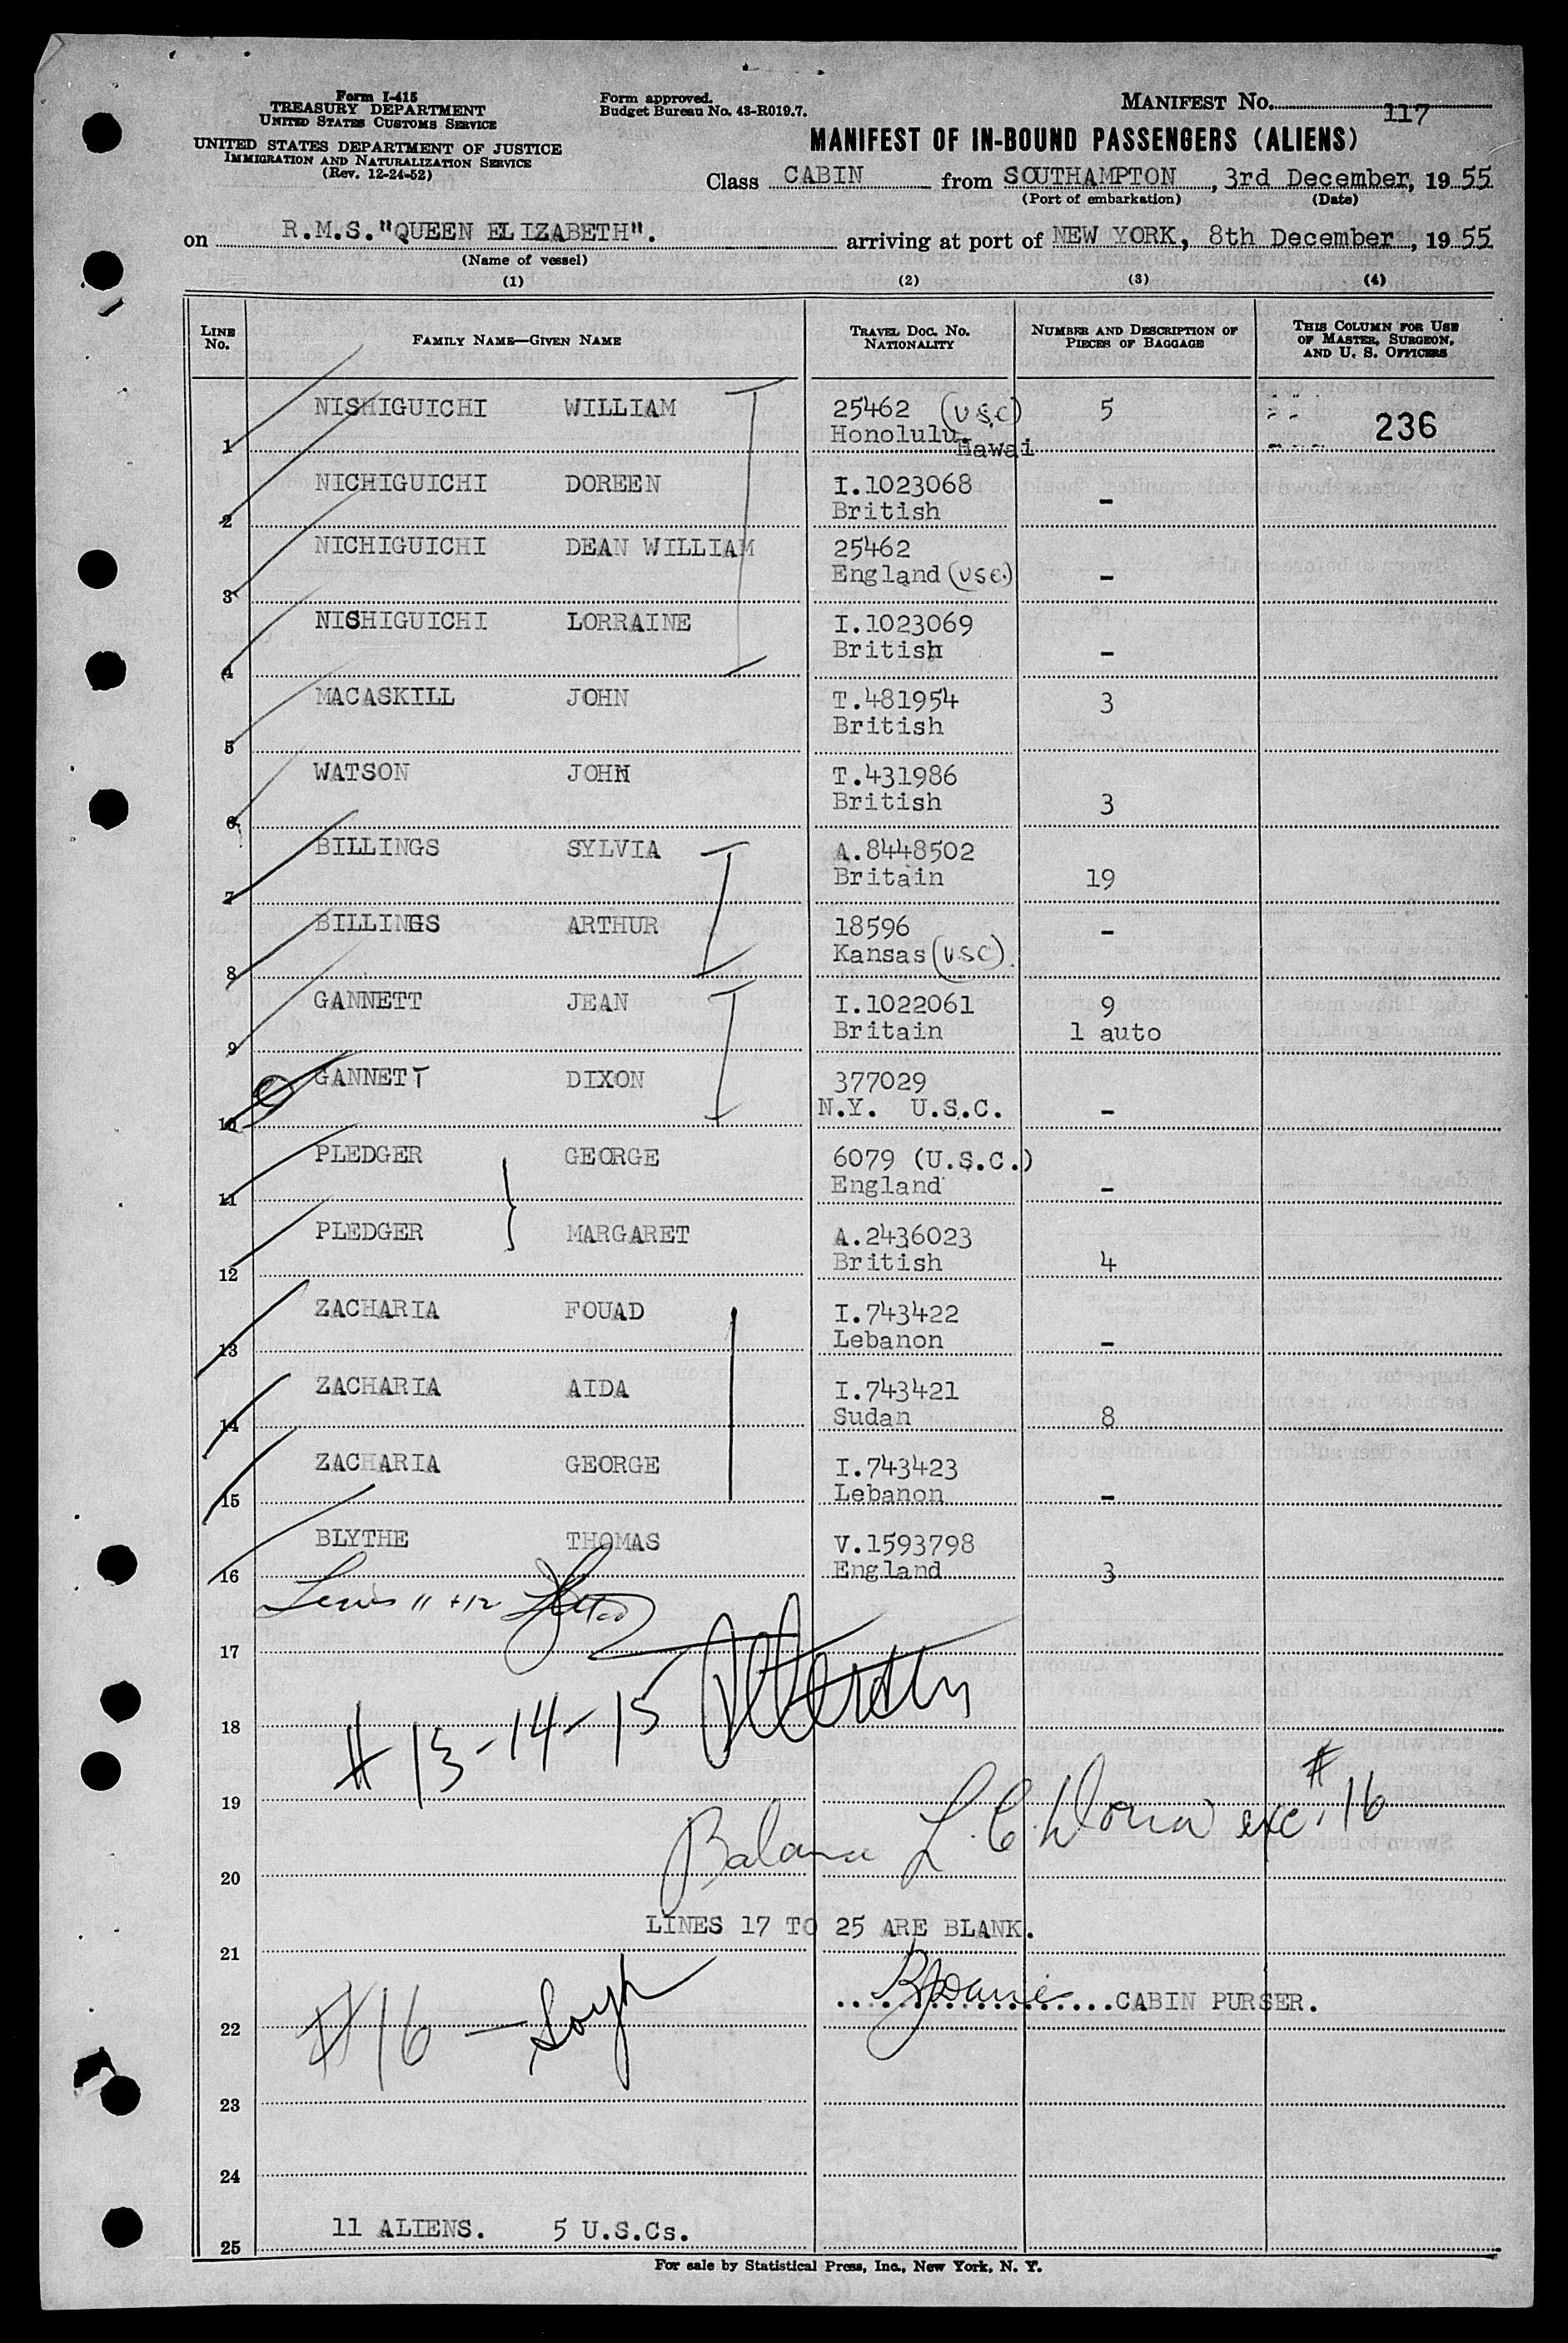 Form I-415
TREASURY DEPARTMENT
UNITED STATES CUSTOMS SERVICE
UNITED STATES DEPARTMENT OF JUSTICE
IMMIGRATION AND NATURALIZATION SERVICE
(Rev. 12-24-52)
Form approved.
Budget Bureau No. 43-R019.7.
MANIFEST No. 117
MANIFEST OF IN-BOUND PASSENGERS (ALIENS)
Class CABIN from SOUTHAMPTON, 3rd December, 1955
(Port of embarkation) (Date)
on R.M.S."QUEEN ELIZABETH". arriving at port of NEW YORK, 8th December, 1955
(Name of vessel)
(1) (2) (3) (4)
LINE No. FAMILY NAME—GIVEN NAME TRAVEL DOC. NO. NATIONALITY NUMBER AND DESCRIPTION OF PIECES OF BAGGAGE THIS COLUMN FOR USE OF MASTER, SURGEON, AND U. S. OFFICERS
NISHIGUICHI WILLIAM 25462 (USC) 5 236
1 Honolulu, Hawai
NICHIGUICHI DOREEN I.1023068 -
2 British
NICHIGUICHI DEAN WILLIAM 25462
3 England (USC.) -
NISHIGUICHI LORRAINE I.1023069
4 British -
MACASKILL JOHN T.481954 3
5 British
WATSON JOHN T.431986
6 British 3
BILLINGS SYLVIA A.8448502
7 Britain 19
BILLINGS ARTHUR 18596 -
8 Kansas (USC)
GANNETT JEAN I.1022061 9
9 Britain 1 auto
GANNETT DIXON 377029
10 N.Y. U.S.C. -
PLEDGER GEORGE 6079 (U.S.C.)
11 England -
PLEDGER MARGARET A.2436023
12 British 4
ZACHARIA FOUAD I.743422
13 Lebanon -
ZACHARIA AIDA I.743421
14 Sudan 8
ZACHARIA GEORGE I.743423
15 Lebanon -
BLYTHE THOMAS V.1593798
16 England 3
11 + 12
17
# 13-14-15
18
# 16
19
20
LINES 17 TO 25 ARE BLANK.
21
CABIN PURSER.
#16 —
22
23
24
11 ALIENS. 5 U.S.Cs.
25
For sale by Statistical Press, Inc., New York, N. Y.